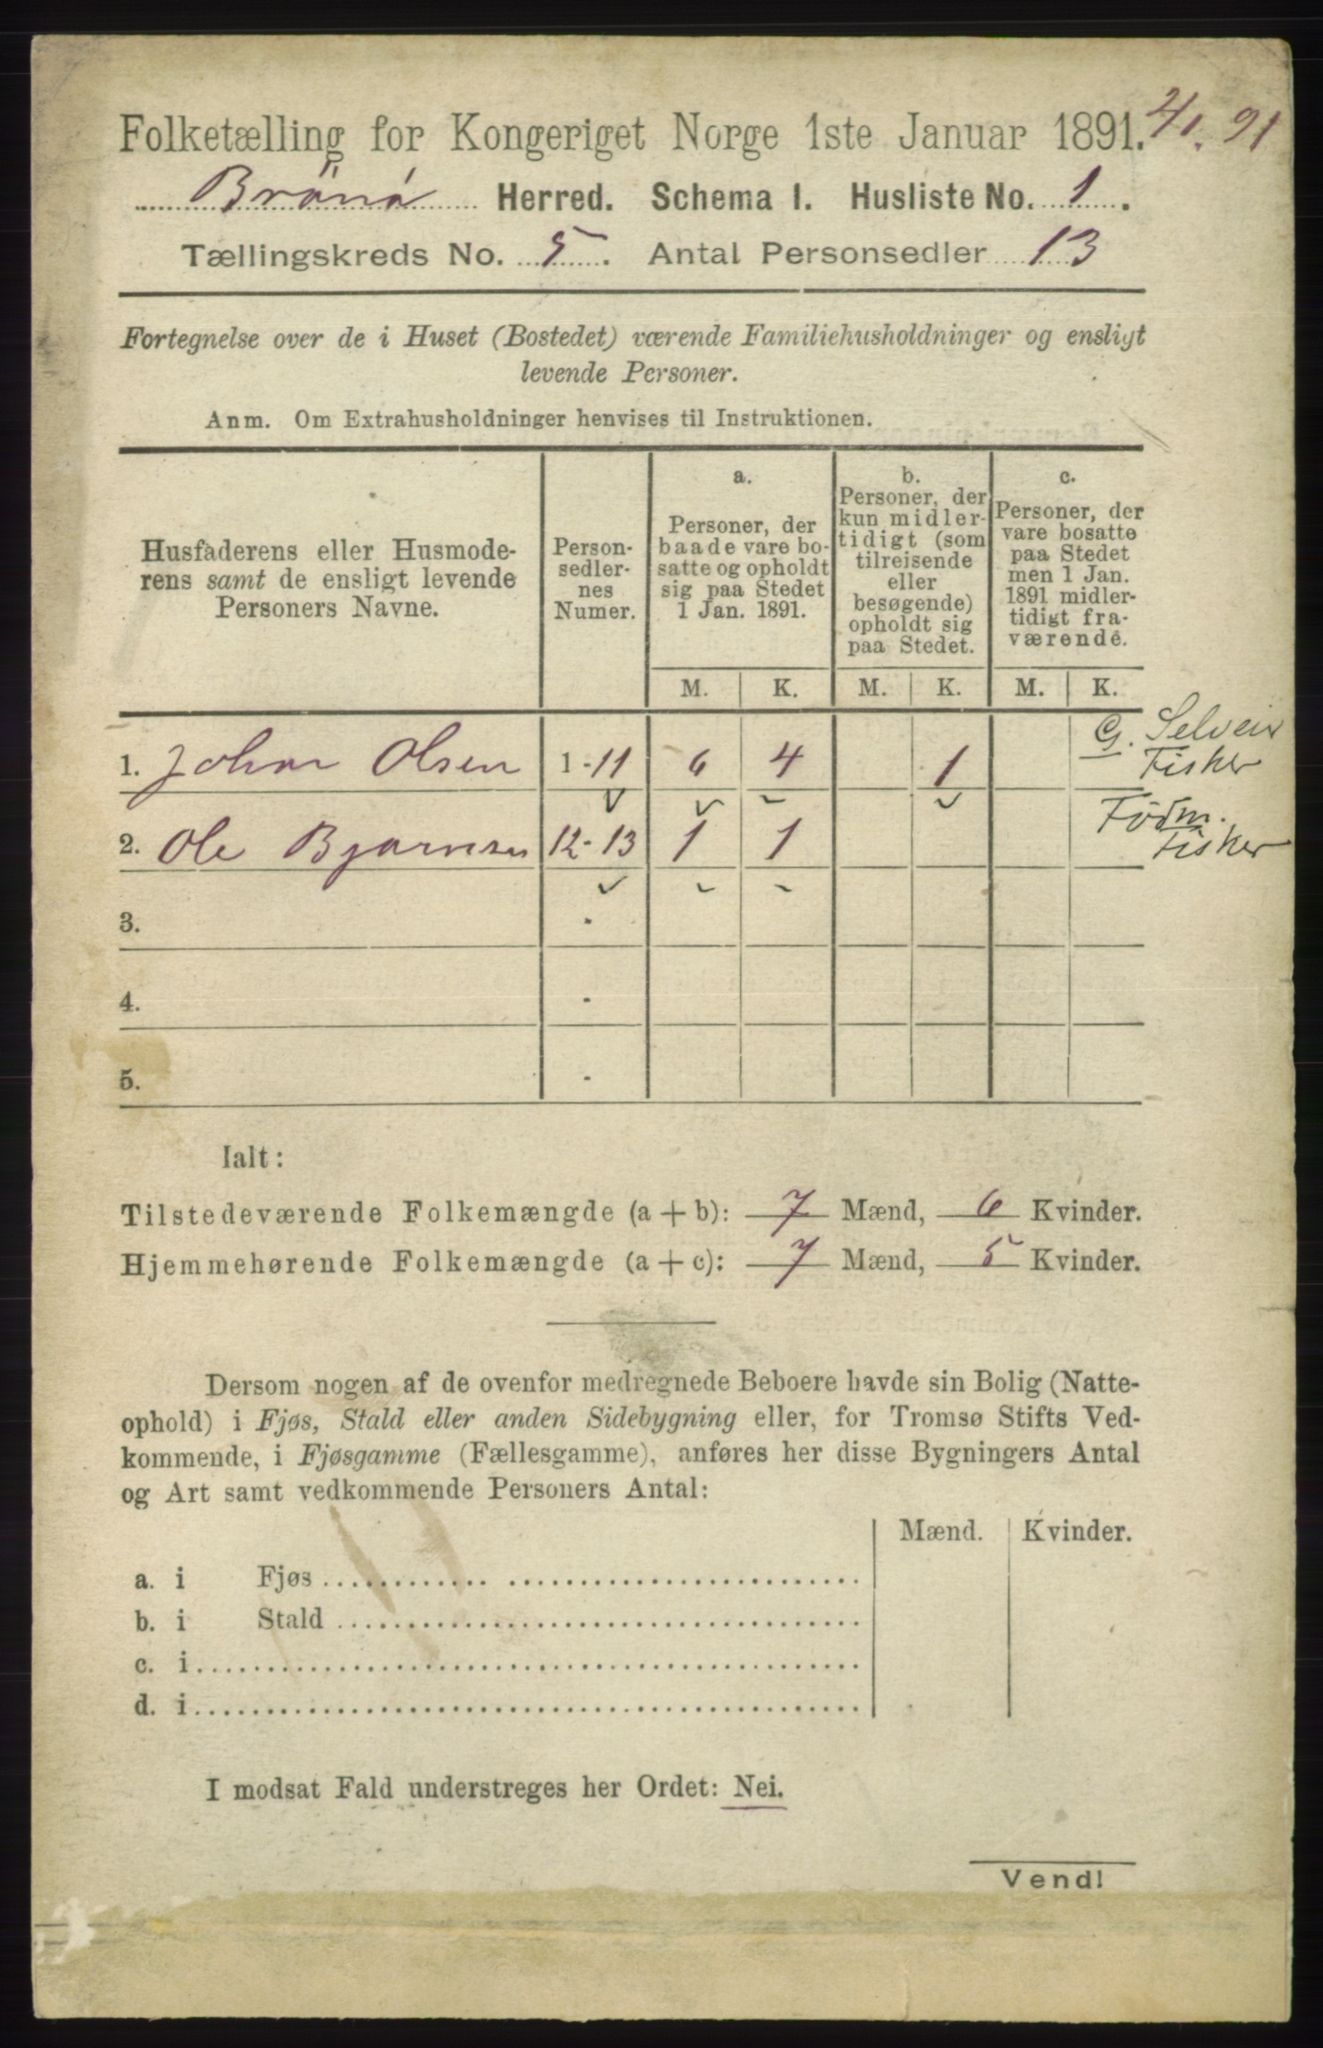 Folketælling for Kongeriget Norge 1ste Januar 1891. 4/1. 91
Brönö Herred. Schema I. Husliste No. 1.
Tællingskreds No. 5. Antal Personsedler 13
Fortegnelse over de i Huset (Bostedet) værende Familiehusholdninger og ensligt
levende Personer.
Anm. Om Extrahusholdninger henvises til Instruktionen.
Husfaderens eller Husmode-
rens samt de ensligt levende
Personers Navne.
Person-
sedler-
nes
Numer.
a.
Personer, der
baade vare bo-
satte og opholdt
sig paa Stedet
1 Jan. 1891.
b.
Personer, der
kun midler-
tidigt (som
tilreisende
eller
besøgende)
opholdt sig
paa Stedet.
c.
Personer, der
vare bosatte
paa Stedet
men 1 Jan.
1891 midler-
tidigt fra-
værende.
M. K. M. K. M. K.
1. Johan Olsen 1-11 6 4 1 G. Selveier
Fisker
2. Ole Bjørnsen 12-13 1 1 Födm.
Fisker
3. -
4. -
5. -
Ialt:
Tilstedeværende Folkemængde (a + b): 7 Mænd, 6 Kvinder.
Hjemmehørende Folkemængde (a + c): 7 Mænd, 5 Kvinder.
Dersom nogen af de ovenfor medregnede Beboere havde sin Bolig (Natte-
ophold) i Fjøs, Stald eller anden Sidebygning eller, for Tromsø Stifts Ved-
kommende, i Fjøsgamme (Fællesgamme), anføres her disse Bygningers Antal
og Art samt vedkommende Personers Antal:
Mænd. Kvinder.
a. i Fjøs
b. i Stald
c. i
d. i
I modsat Fald understreges her Ordet: Nei.
Vend!